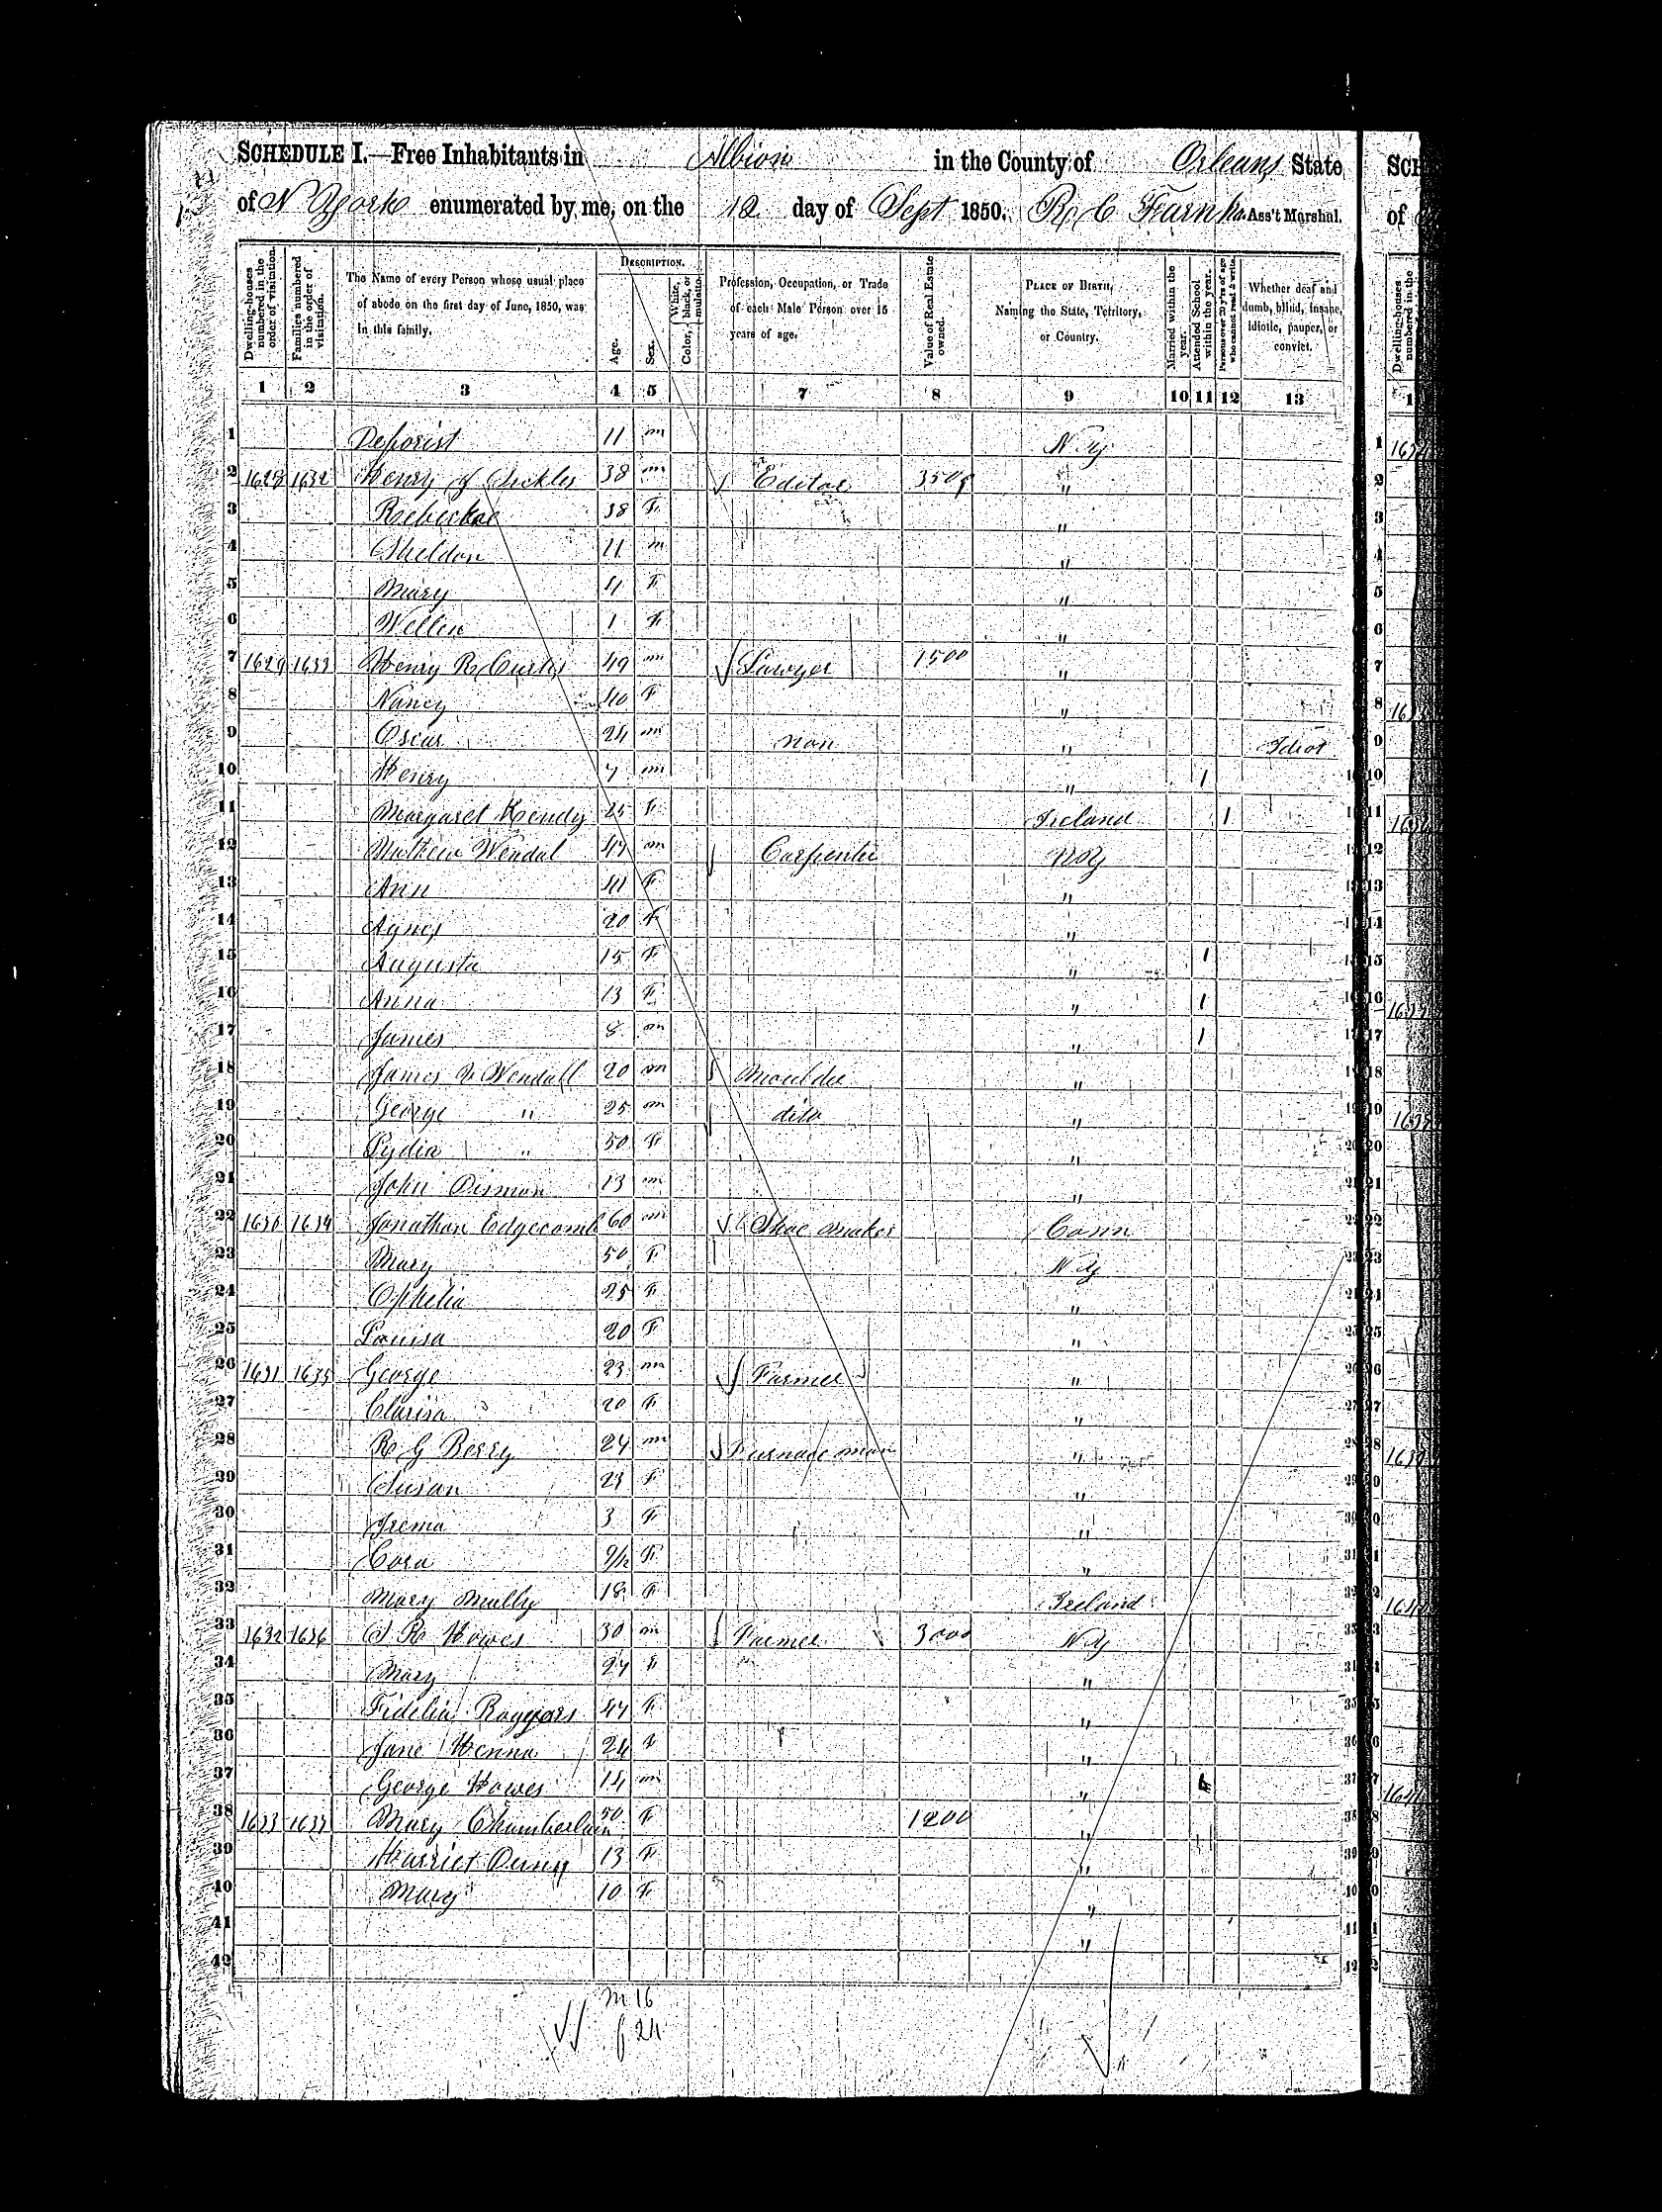 SCHEDULE I.—Free Inhabitants in Albion in the County of Orleans State
of N York enumerated by me, on the 12 day of Sept 1850. Ass't Marshal.
Dwelling-houses numbered in the order of visitation.
Families numbered in the order of visitation.
The Name of every Person whose usual place of abode on the first day of June, 1850, was in this family.
DESCRIPTION.
Age.
Sex.
Color, White, black, or mulatto.
Profession, Occupation, or Trade of each Male Person over 15 years of age.
Value of Real Estate owned.
PLACE OF BIRTH, Naming the State, Territory, or Country.
Married within the year.
Attended School within the year.
Persons over 20 y'rs of age who cannot read & write.
Whether deaf and dumb, blind, insane, idiotic, pauper, or convict.
1 2 3 4 5 7 8 9 10 11 12 13
1 11 m N Y
2 1628 1632 Henry J Sickles 38 m Editor 3500 "
3 38 F "
4 Sheldon 11 m "
5 Mary 4 F "
6 1 F "
7 1629 1633 Henry R Curtis 49 m Lawyer 1500 "
8 Nancy 40 F "
9 Oscar 24 m non " Idiot
10 Henry 7 m " 1
11 Margaret Kendy 25 F Ireland 1
12 Mathew Wendal 47 m Carpenter N Y
13 Ann 41 F "
14 Agnes 20 F "
15 Augusta 15 F " 1
16 Anna 13 F " 1
17 James 8 m " 1
18 James V Wendall 20 m Moulder "
19 George " 25 m dito "
20 Lydia " 50 F "
21 John 13 m "
22 1630 1634 Jonathan Edgecomb 60 m Shoe maker Conn
23 Mary 50 F N Y
24 Ophelia 25 F "
25 Louisa 20 F "
26 1631 1635 George 23 m Farmer "
27 Clarisa 20 F "
28 R G Berry 24 m Furnace man "
29 Susan 23 F "
30 3 F "
31 Cora 9/12 F "
32 Mary Mully 18 F Ireland
33 1632 1636 S R Howes 30 m Farmer 3000 N Y
34 Mary 24 F "
35 Fidelia 47 F "
36 Jane Henna 24 F "
37 George Howes 14 m "
38 1633 1637 Mary Chamberlain 50 F 1200 "
39 Harriet 13 F "
40 Mary 10 F "
41 "
42
m 16
f 24